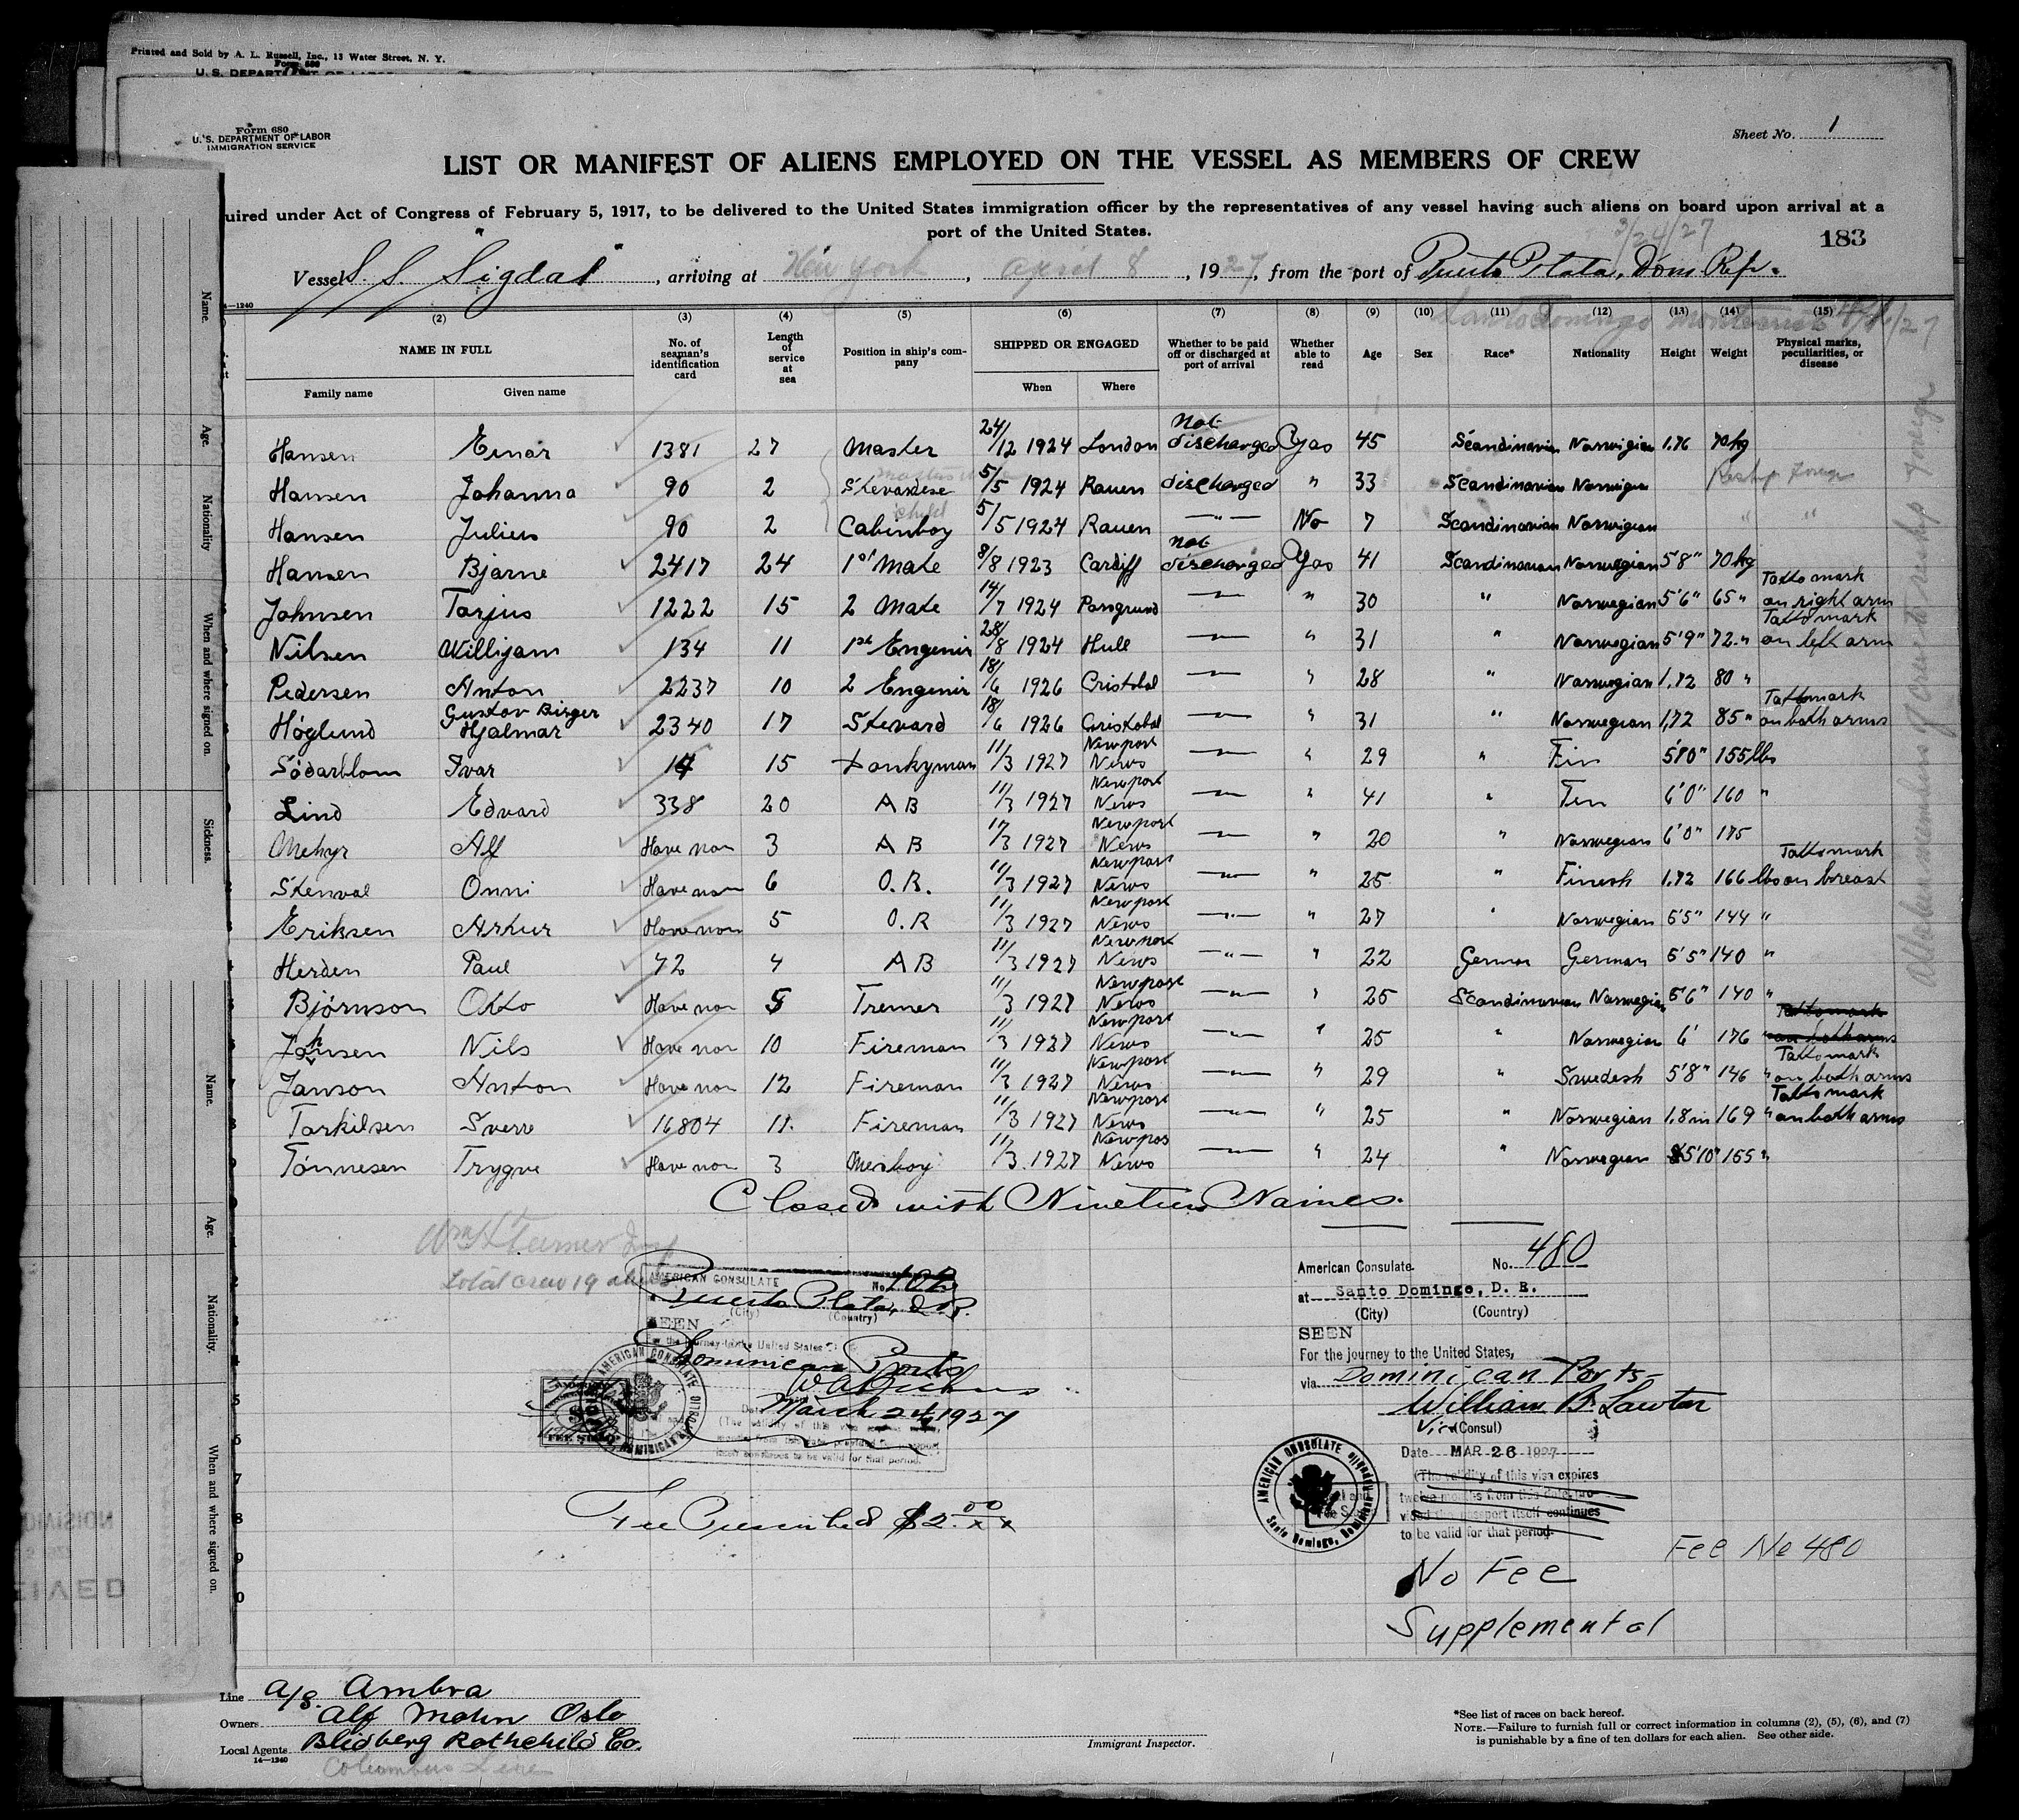 Printed and Sold by A. L. Russell, Inc., 13 Water Street, N. Y.
Form 680
U. S. DEPARTMENT OF LABOR
Form 680
U. S. DEPARTMENT OF LABOR
IMMIGRATION SERVICE
Sheet No. 1
LIST OR MANIFEST OF ALIENS EMPLOYED ON THE VESSEL AS MEMBERS OF CREW
uired under Act of Congress of February 5, 1917, to be delivered to the United States immigration officer by the representatives of any vessel having such aliens on board upon arrival at a
port of the United States.
3/24/27
183
Vessel S. S. "Sigdal", arriving at New York, April 8, 1927, from the port of Puerto Plata, Dom Rep.
14—1240
Santo Domingo Montecristi
(2) (3) (4) (5) (6) (7) (8) (9) (10) (11) (12) (13) (14) (15)
NAME IN FULL
Family name Given name
No. of seaman's identification card
Length of service at sea
Position in ship's company
SHIPPED OR ENGAGED
When Where
Whether to be paid off or discharged at port of arrival
Whether able to read
Age
Sex
Race*
Nationality
Height
Weight
Physical marks, peculiarities, or disease
Hansen Einar 1381 27 Master 24/12 1924 London Not discharged Yas 45 Scandinavien Norwigian 1.76 70 kg
Hansen Johanna 90 2 Stevardese 5/5 1924 Rauen discharged " 33 Scandinavian Norwigian
Hansen Julius 90 2 Cabinboy child 5/5 1924 Rauen —"— No 7 Scandinavian Norwigian " "
Hansen Bjarne 2417 24 1st Mate 8/8 1923 Cardiff not discharged Yas 41 Scandinavian Norwegian 5'8" 70 kg
Johnsen Tarjus 1222 15 2 Mate 14/7 1924 Porsgrund —"— " 30 " Norwegian 5'6" 65 " Tatto mark on right arm
Nilsen Willijam 134 11 1st Engenir 28/8 1924 Hull —"— " 31 " Norwegian 5'9" 72 " Tatto mark on left arm
Pedersen Anton 2237 10 2 Engenir 18/6 1926 Cristobal —"— " 28 " Norwigian 1.72 80 "
Høglund Gustav Birger Hjalmar 2340 17 Stevard 18/6 1926 Cristobal —"— " 31 " Norwegian 1,72 85 " Tattomark on both arms
Södarblom Ivar 14 15 Donkyman 11/3 1927 Newport News —"— " 29 " Fin 5'10" 155 lbs
Lind Edvard 338 20 A B 11/3 1927 Newport News —"— " 41 " Fin 6'0" 160 "
Mehyr Alf Have non 3 A B 11/3 1927 Newport News —"— " 20 " Norwegian 6'0" 175
Stenval Onni Have non 6 O.R. 11/3 1927 Newport News —"— " 25 " Finesh 1.72 166 lbs Tattomark on breast
Eriksen Artur Have non 5 O.R 11/3 1927 Newport News —"— " 27 " Norwegian 5'5" 144 "
Herden Paul 72 4 A B 11/3 1927 Newport News —"— " 22 German German 5'5" 140 "
Bjørnson Otto Have non 5 Tremer 11/3 1927 Newport News —"— " 25 Scandinavian Norwegian 5'6" 140 "
Johnsen Nils Have non 10 Fireman 11/3 1927 Newport News —"— " 25 " Norwegian 6' 176 " Tattomark on both arms
Janson Antron Have non 12 Fireman 11/3 1927 Newport News —"— " 29 " Swedesh 5'8" 146 " Tattomark on both arms
Torkilsen Sverre 16804 11. Fireman 11/3 1927 Newport News —"— " 25 " Norwegian 1.8 m 169 " Tattomark on both arms
Tønnesen Trygve Have non 3 Mesboy 11/3 1927 Newpor News —"— " 24 " Norwegian 5'10" 155 "
Closed with Nineteen Names.
Wm H Turner Insp
Total crew 19 aliens
AMERICAN CONSULATE
Puerto Plata, D.R.
(City) (Country)
SEEN
For the journey to the United States
Dominican Ports
March 24, 1927
AMERICAN CONSULATE
Fee Prescribed $2.00
American Consulate. No. 480
at Santo Domingo, D. R.
(City) (Country)
SEEN
For the journey to the United States,
via Dominican Ports
William B. Lawton
Vice (Consul)
Date MAR 26 1927
(The validity of this visa expires
twelve months from this date, pro-
vided the passport itself continues
to be valid for that period.
AMERICAN CONSULATE
Santo Domingo, Dominican Republic
No Fee
Supplemental
Fee No 480
Line A/S. Ambra
Owners Alf Mohn Oslo
Local Agents Blidberg Rothchild Co.
14—1240
Columbus Line
Immigrant Inspector.
*See list of races on back hereof.
NOTE.—Failure to furnish full or correct information in columns (2), (5), (6), and (7)
is punishable by a fine of ten dollars for each alien. See other side.
Name.
Age.
Nationality
When and where signed on.
Sickness.
Name.
Age.
Nationality.
When and where signed on.